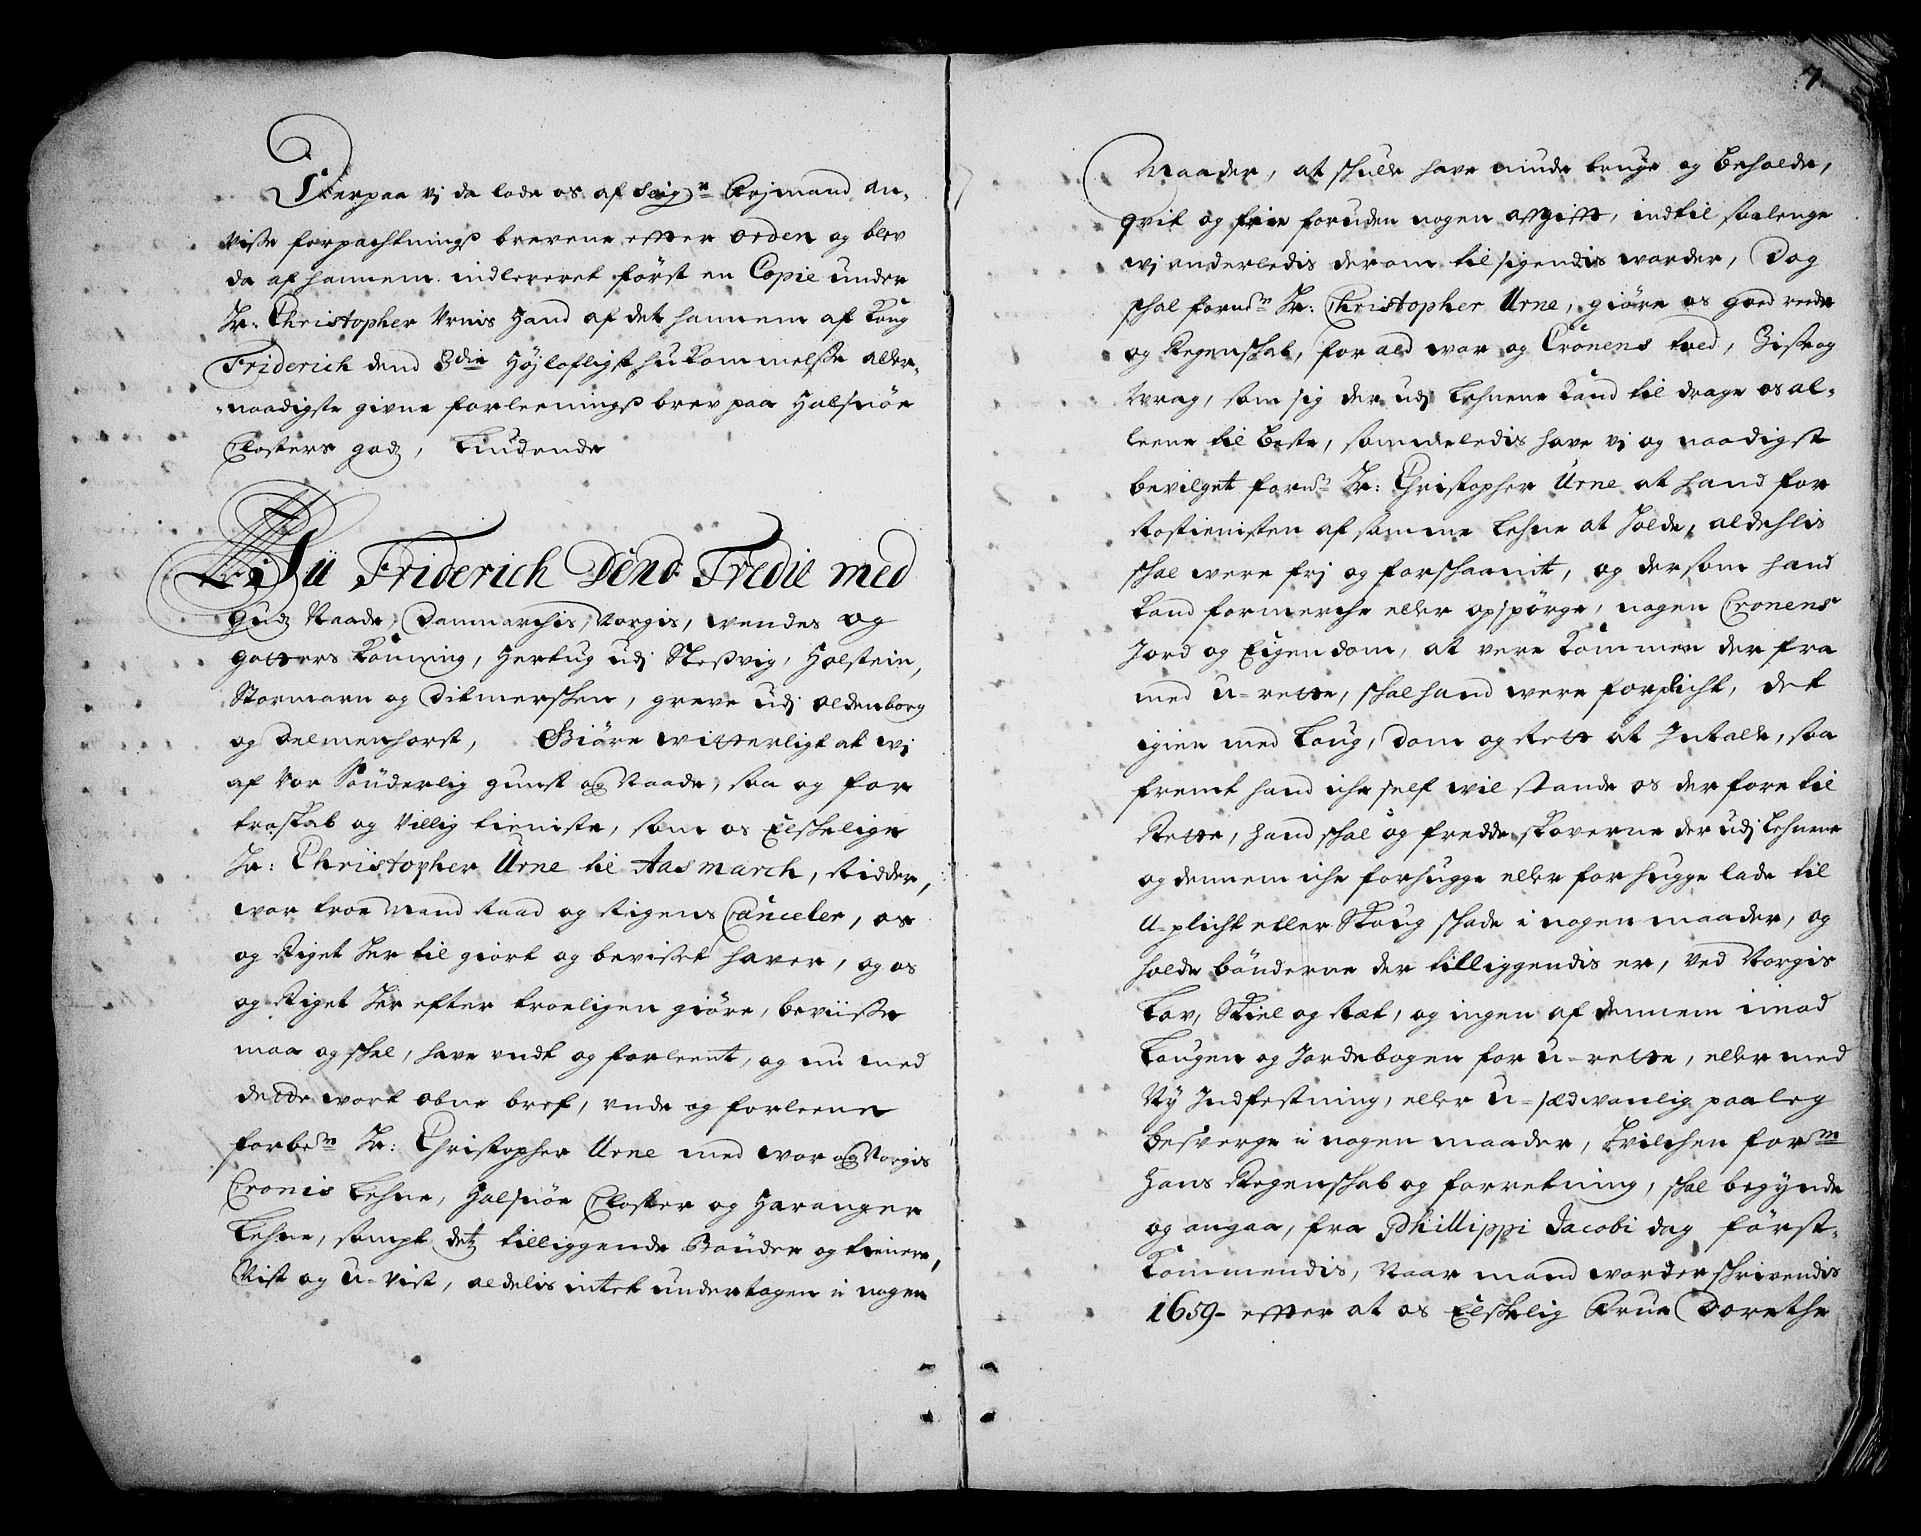 Herpaa vj da lode os af Seigr Rejmand an-
viisse forpachtnings brevene efter orden og blev
da af hannem indleveret först en Copie under
Hr: Christopher Urnis Hand af det hannem af Kong
Friderich dend 3die Höjlofligst hukommelsse aller-
naadigste givne forleenings brev paa Halsnöe
Closters godz, Liudende
Wii Friderich Dend Tredie med
Gudz Naade, Danmarchis, Norgis, Wendes og
Gotters Konning, Hertug udj Slesvig, Holstein,
Stormarn og Ditmerschen, Greve udj Oldenborg
og Delmenhorst, Giöre witterligt at wj
af Vor Sönderlig gunst og Naade, saa og for
troskab og Villig tieniste, som os Elskelige
Hr: Christopher Urne til Aasmarch, Ridder,
wor troe Mand Raad og Rigens Canceler, os
og Riget her til giort og bevisset haver, og os
og Riget her efter troeligen giöre, beviisse
maa og schal, have undt og forleent, og nu med
dette wort obne bref, unde og forleene
forbem Hr: Christopher Urne med wor og Norgis
Cronis Lehne, Halsnöe Closter og Haranger
Lehne, sampt detz tilliggende Bönder og tienere,
Vist og U-Vist, aldelis intet undertagen i nogen
7.
Maader, at skulle have niude bruge og beholde,
qvit og frie foruden nogen afgift, indtil saalenge
wj anderledis derom tilsigendis worder, Dog
schal forne Hr: Christopher Urne, giöre os goed rede
og Regenskab, for ald wor og Cronens toed, Sise og
Wrag, som sig der udj Lehnene kand til drage os al-
leene til beste, sammeledis have vj og naadigst
bevilget forne Hr: Christopher Urne at hand for
Rostienisten af samme Lehne at holde, aldehlis
schal were frj og forschaanit, og dersom hand
kand formerche eller opspörge, nogen Cronens
Jord og Eigendom, at vere kommen der fra
med U-rette, schal hand were forplicht, det
igien med Loug, Dom og Rett at Intale, saa
fremt hand iche self wil stande os der fore til
Rette, Hand schal og fredde skoverne der udj Lehnene
og dennem iche forhugge eller for hugge lade til
U-plicht eller Skoug schade i nogen maader, og
holde bönderne der tilliggendis er, Ved Norgis
Lov, Skiel og Ræt, og ingen af dennem imod
Lougen og Jordebogen for U-rette, eller med
Ny Indfestning, eller U-sædwanlig paaleg
besverge i nogen maader, Hvilchen form
Hans Regenschab og forretning, schal begynde
og angaa, fra Phillippi Jacobi dag först-
kommendis, Naar mand worder schrivendis
1659- efter at os Elskelig Frue Dorethe